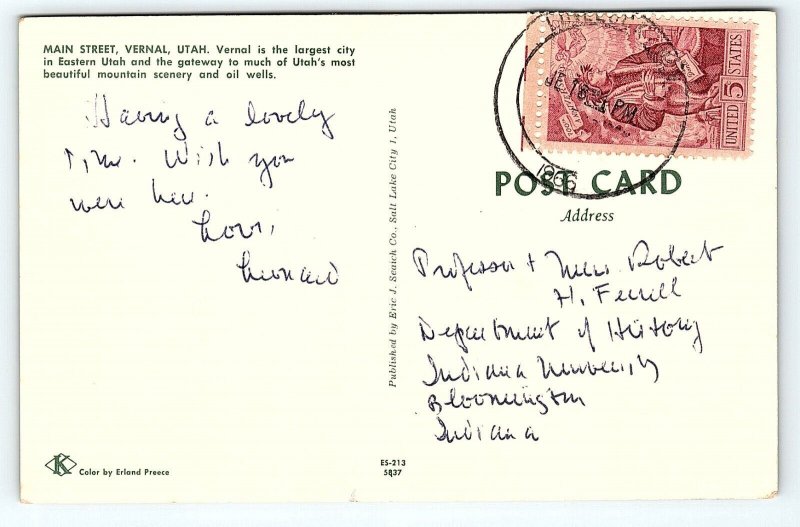 MAIN STREET, VERNAL, UTAH. Vernal is the largest city
in Eastern Utah and the gateway to much of Utah's most
beautiful mountain scenery and oil wells.
Having a lovely
time. Wish you
were here.
Love,
Leonard
Published by Eric J. Seaich Co., Salt Lake City 1, Utah
PM
1966
UNITED 5 STATES
POST CARD
Address
Professor + Mrs. Robert
H. Ferrell
Department of History
Indiana University
Bloomington
Indiana
K
Color by Erland Preece
ES-213
5837